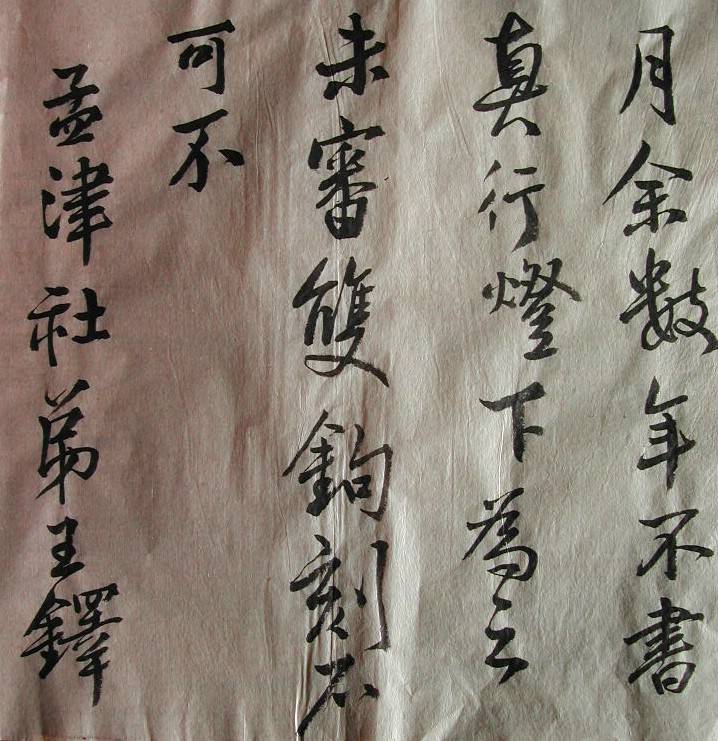 月余數年不書
真行燈下為之
未審雙鉤刻石
可不
孟津社弟王鐸